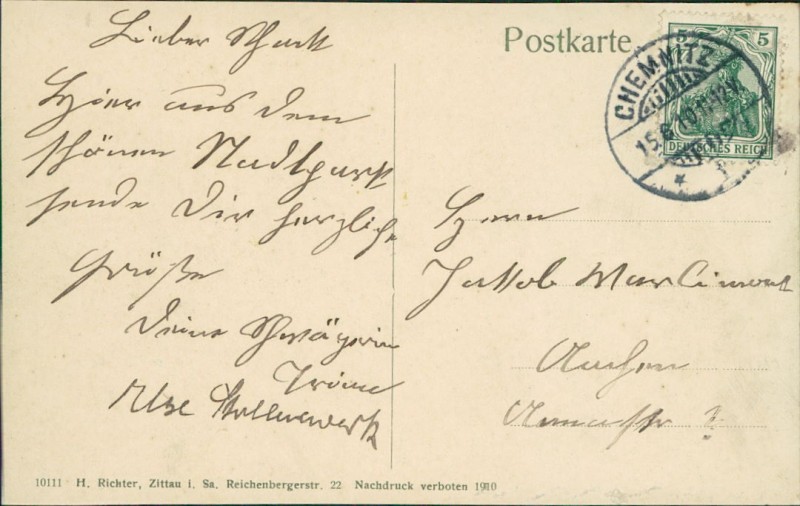 Postkarte
5 5
DEUTSCHES REICH
CHEMNITZ
15.6.10.11-12V.
Lieber Schatt
Hier aus dem
schönen Stadtpark
sende Dir herzliche
Grüße
Deine Schwägerin
Ilse Stollenwerk
Herrn
Jakob
Aachen
Annastr ?
10111 H. Richter, Zittau i. Sa. Reichenbergerstr. 22 Nachdruck verboten 1910